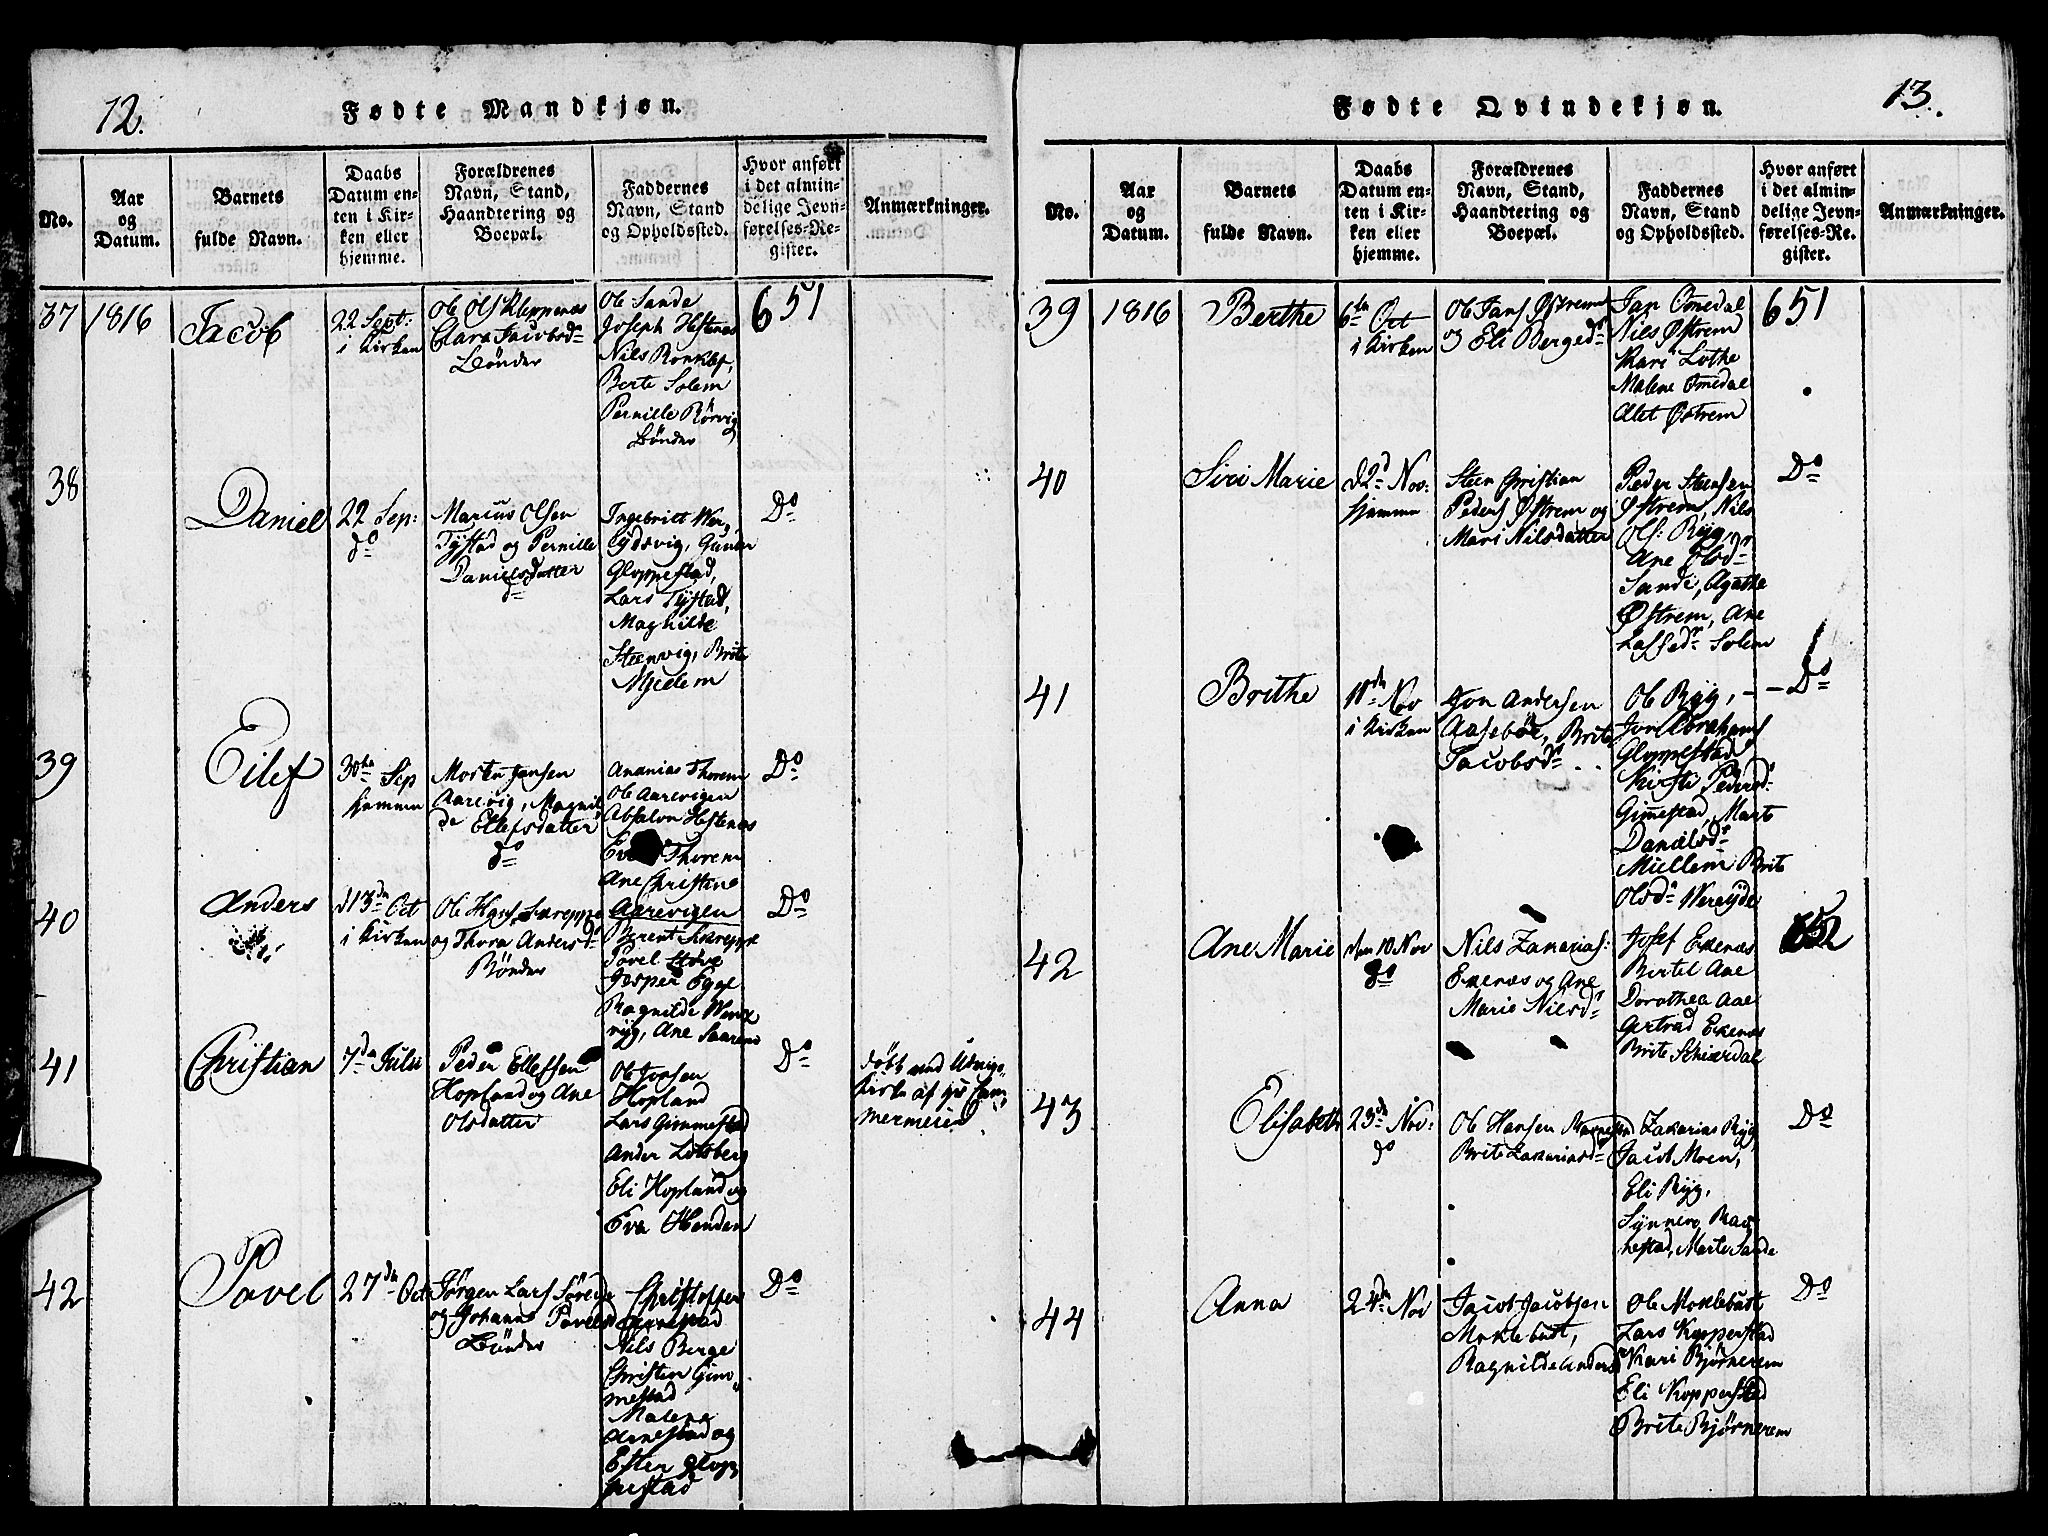 12.
Fødte Mandkjøn.
No.
Aar
og
Datum.
Barnets
fulde Navn.
Daabs
Datum en-
ten i Kir-
ken eller
hjemme.
Forældrenes
Navn, Stand,
Haandtering og
Boepæl.
Faddernes
Navn, Stand
og Opholdssted.
Hvor anført
i det almin-
delige Jevn-
førelses-Re-
gister.
Anmærkninger.
37
1816
Jacob
22 Sept:
i Kirken
Ole Ols Kleppenæs
Clara Jacobsdr
Bönder
Ole Sande
Joseph Hestenæs
Nils
Berte Solem
Pernille Rörvig
Bönder
651
38
Daniel
22 Sep:
do
Marcus Olsen
Tÿstad og Pernille
Danielsdatter
do
Ingebritt Wer-
eÿdsvig, Gunder
Gloppestad,
Lars Tÿstad,
Maghilde
Steenvig, Brite
Mjelem
Do
39
Eilef
30te Sep
hjemme
Morten Jansen
Aarevig, Magnil
de Ellefsdatter
do
Ananias Thorem
Ole Aarevigen
Absalon Hestenæs
Eva Thorem
Ane Christine
Aarevigen
Do
40
Anders
d 13de Oct
i Kirken
Ole Hans Skreppe
og Thora Andersdr
Bönder
Berent Skreppe
Povel
Jesper Egge
Ragnilde Were
eÿg, Ane
Do
41
Christian
7de Juli
Peder Ellefsen
Hopland og Ane
Olsdatter
Ole Jonsen
Hopland
Lars Gimmestad
Ander Lotsberg
Eli Hopland og
Eva Henden
Do
döbt ved Udvigs
Kirke af Hr Ham
mermeied
42
Povel
27de Oct
Jörgen Lars Söreide
og Johanne Povelsd
Bönder
Christopher
Arnestad
Nils Berge
Christen Gim-
mestad
Malene
Arnestad og
Ester Glop
pestad
Do
13.
Fødte Qvindekjøn.
No.
Aar
og
Datum.
Barnets
fulde Navn.
Daabs
Datum en-
ten i Kir-
ken eller
hjemme.
Forældrenes
Navn, Stand,
Haandtering og
Boepæl.
Faddernes
Navn, Stand
og Opholdssted.
Hvor anført
i det almin-
delige Jevn-
førelses-Re-
gister.
Anmærkninger.
39
1816
Berthe
6te Oct
i Kirken
Ole Jans Østrem
og Eli Bergedr
Jan Omedal
Nils Østrem
Kari Lothe
Malene Omedal
Alet Østrem
651
40
Siri Marie
d 2d Nov:
hjemme
Steen Christian
Peders Østrem og
Mari Nilsdatter
Peder Steensen
Østrem, Nils
Ols: Rÿg,
Ane Olsdr
Sande, Agathe
Østrem, Ane
Lassedr Solem
Do
41
Brithe
10de Nov
i Kirken
Jon Andersen
Aaseböe, Brite
Jacobsdr
Ole Rÿg,
Jon Abrahams
Gloppestad
Kirsti Pedersdr
Gimestad, Marte
Danielsdr
Miellem Brite
Olsdr Wereÿde
Do
42
Ane Marie
den 10 Nov
do
Nils Zakarias:
Ekenæs og Ane
Marie Nielsdr
Josef Ekenæs
Bertel Aae
Dorothea Aae
Gertrud Ekenæs
Brite Schiærdal
652
43
Elisabeth
23de Nov:
do
Ole Hansen
Brite Zakariasdr
Zakarias Rÿg
Jacob Moen,
Eli Rÿg,
Synneve Rag
hestad, Marte Sande
Do
44
Anna
24de Nov
Jacob Jacobsen
Moklebust,
Ragnilde Anders
Ole Moklebust
Lars Kopperstad
Kari Bjørnerem
Eli Kopperstad
Brite Bjørnerem
Do